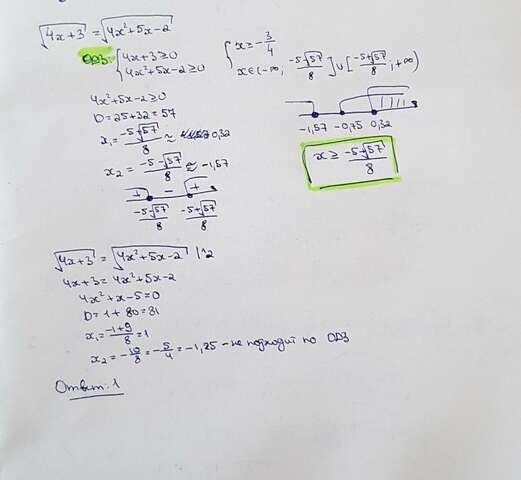 √4x+3 = √4x²+5x-2
ОДЗ: { 4x+3≥0
4x²+5x-2≥0
{ x≥-3/4
x∈(-∞; -5-√57/8] ∪ [-5+√57/8; +∞)
4x²+5x-2≥0
D=25+32=57
x₁=-5+√57/8 ≈ 0,32
x₂=-5-√57/8 ≈ -1,57
+ - +
-5-√57/8 -5+√57/8
-1,57 -0,75 0,32
x≥ -5+√57/8
√4x+3 = √4x²+5x-2 |^2
4x+3=4x²+5x-2
4x²+x-5=0
D=1+80=81
x₁=-1+9/8=1
x₂=-10/8=-5/4=-1,25 - не подходит по ОДЗ
Ответ: 1